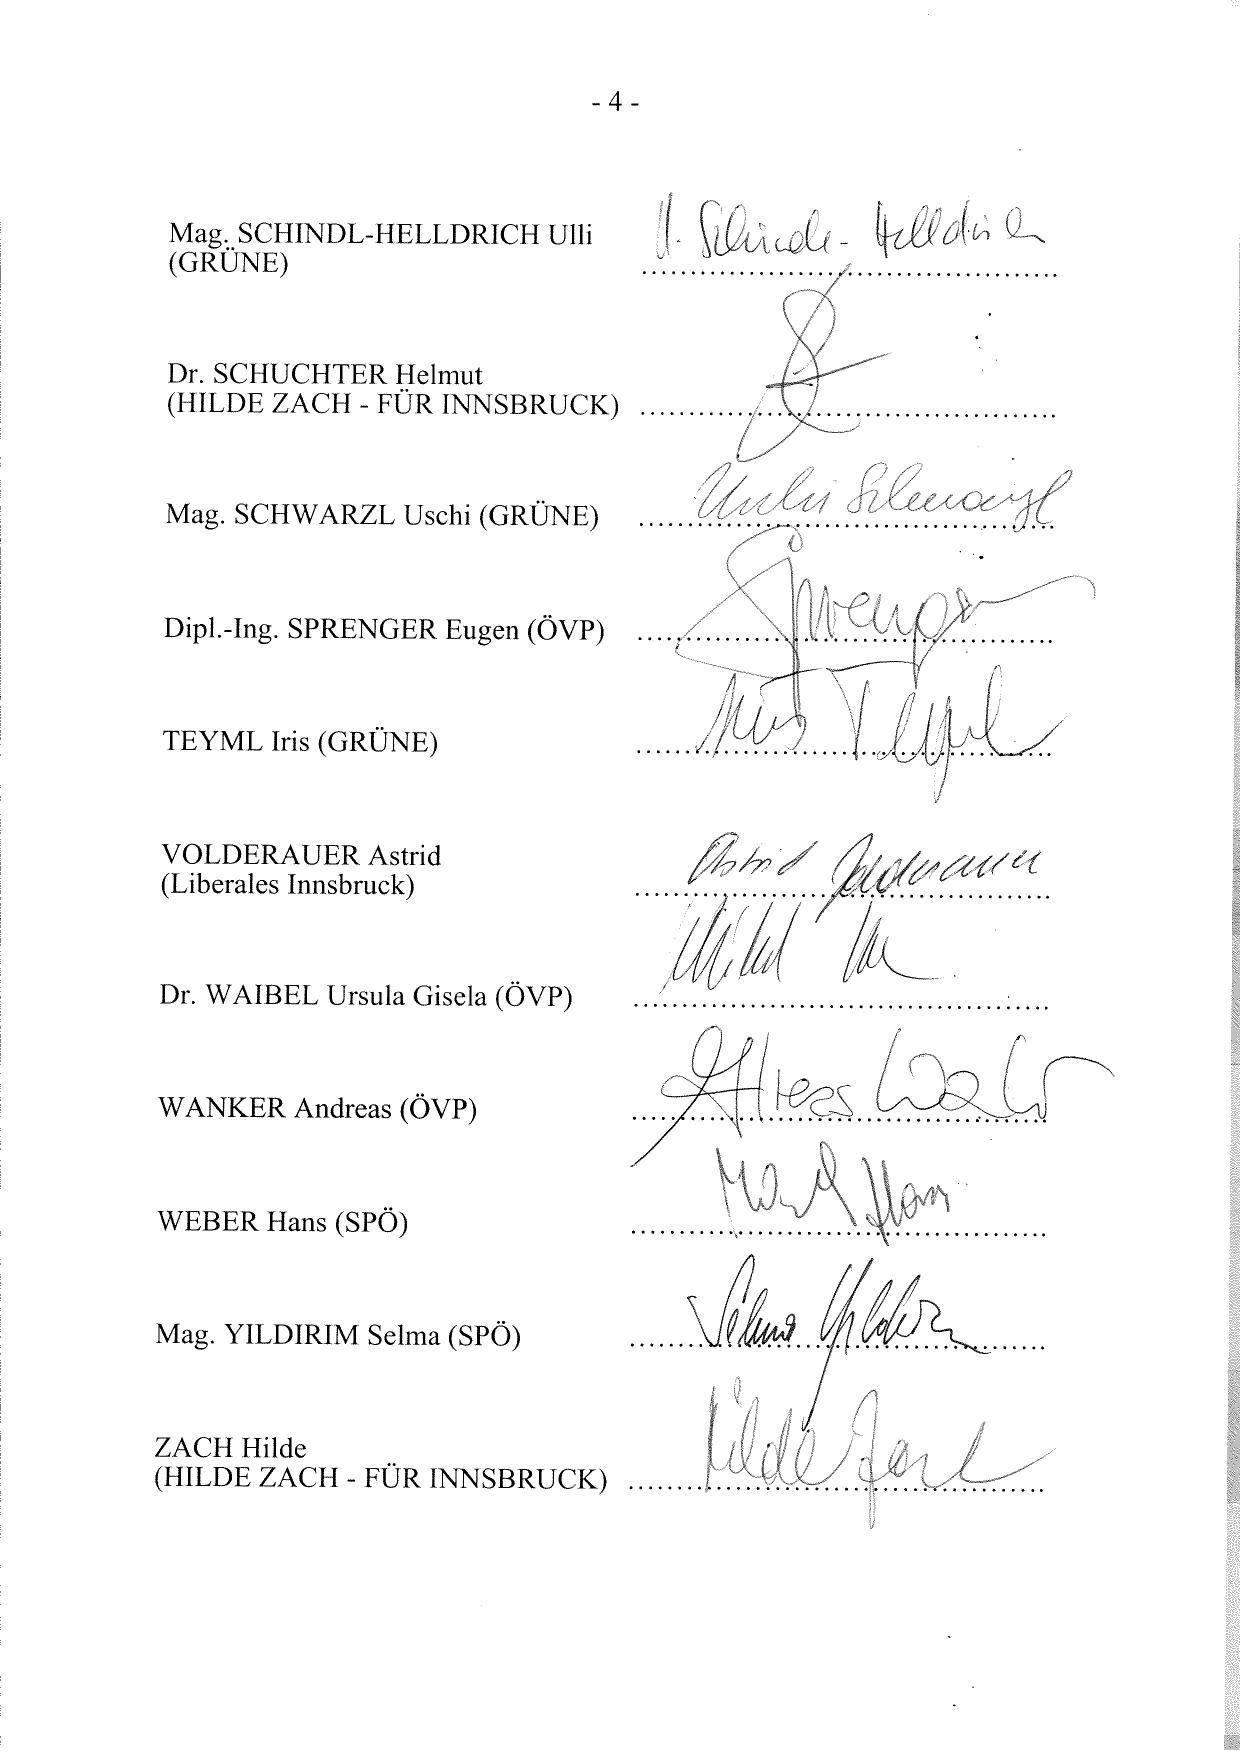 - 4 -
Mag. SCHINDL-HELLDRICH Ulli
(GRÜNE)
U. Schindl-Helldrich
Dr. SCHUCHTER Helmut
(HILDE ZACH - FÜR INNSBRUCK)
Mag. SCHWARZL Uschi (GRÜNE)
Uschi Schwarzl
Dipl.-Ing. SPRENGER Eugen (ÖVP)
Sprenger
TEYML Iris (GRÜNE)
Iris Teyml
VOLDERAUER Astrid
(Liberales Innsbruck)
Astrid Volderauer
Dr. WAIBEL Ursula Gisela (ÖVP)
WANKER Andreas (ÖVP)
WEBER Hans (SPÖ)
Hans
Mag. YILDIRIM Selma (SPÖ)
Selma Yildirim
ZACH Hilde
(HILDE ZACH - FÜR INNSBRUCK)
Hilde Zach